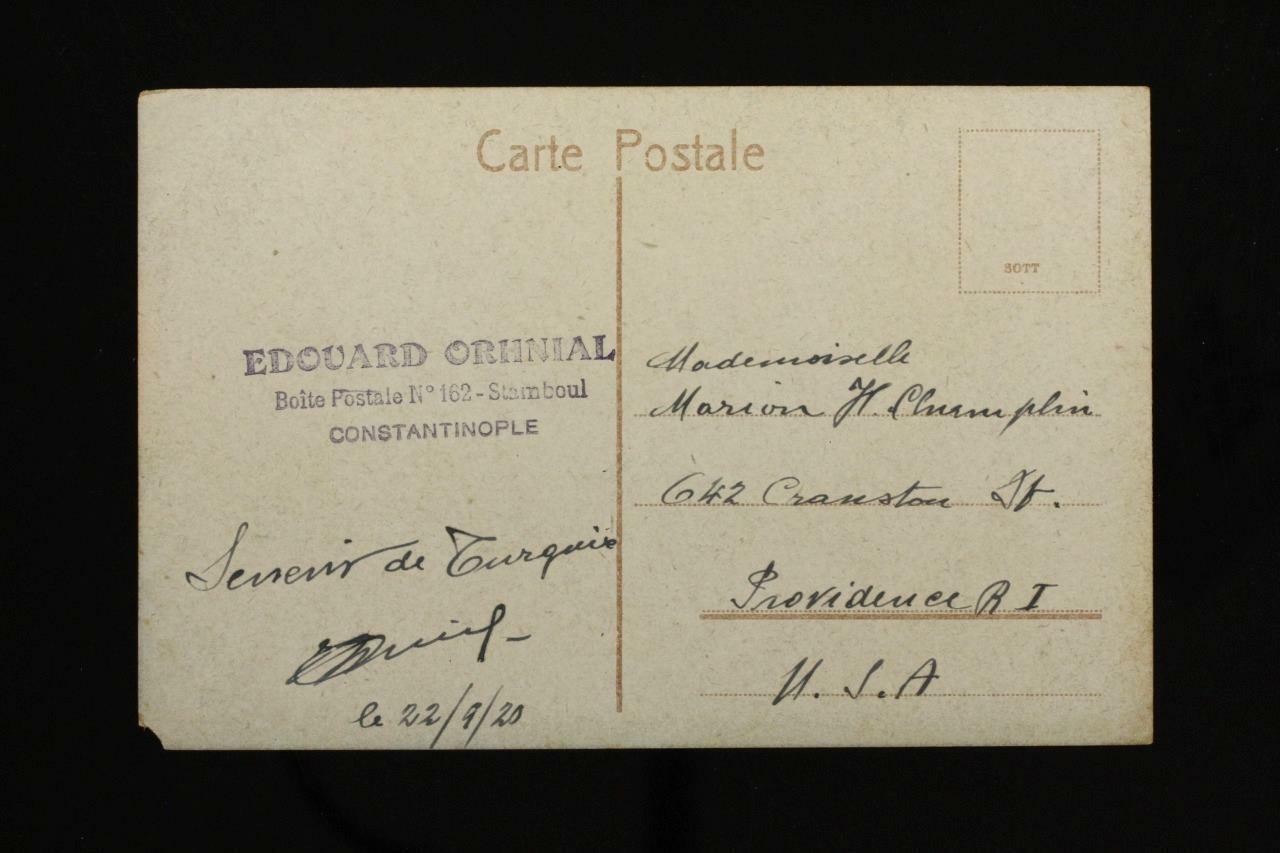 Carte Postale
SOTT
EDOUARD ORHNIAL
Boîte Postale N° 162 - Stamboul
CONSTANTINOPLE
de Turquie
le 22/9/20
Mademoiselle
Marion H. Champlin
642 Cranston St.
Providence R I
U. S. A